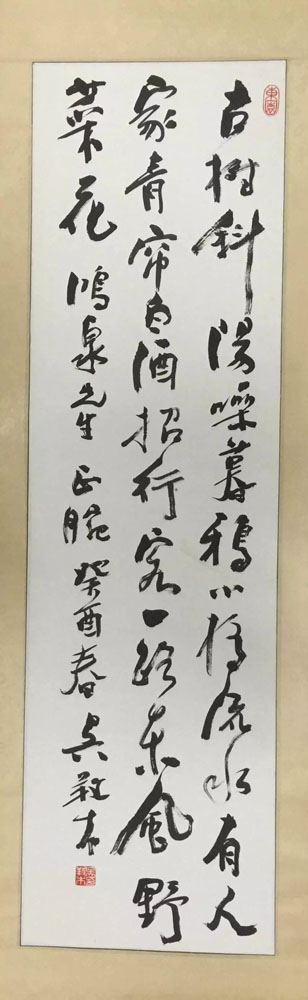 古樹斜陽噪暮鴉小橋流水有人
家青帘白酒招行客一路東風野
菜花 鴻泉先生 正腕 癸酉春 吳羖木